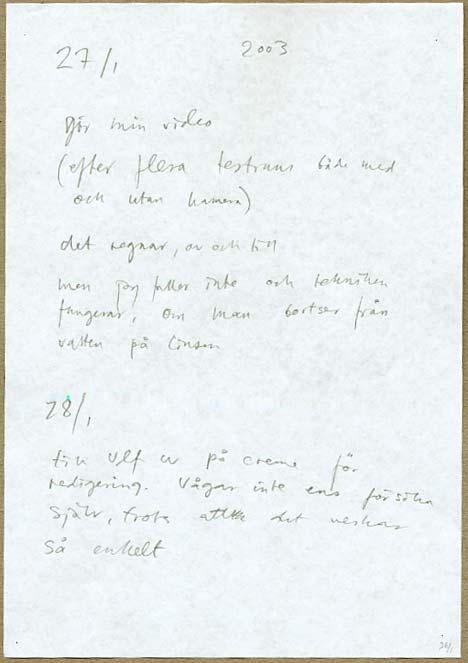 27/1 2003
gör min video
(efter flera testruns både med
och utan kamera)
det regnar, av och till
men jag faller inte och tekniken
fungerar, om man bortser från
vatten på linsen
28/1
till Ulf W på creme för
redigering. Vågar inte ens försöka
själv, trots att det verkar
så enkelt